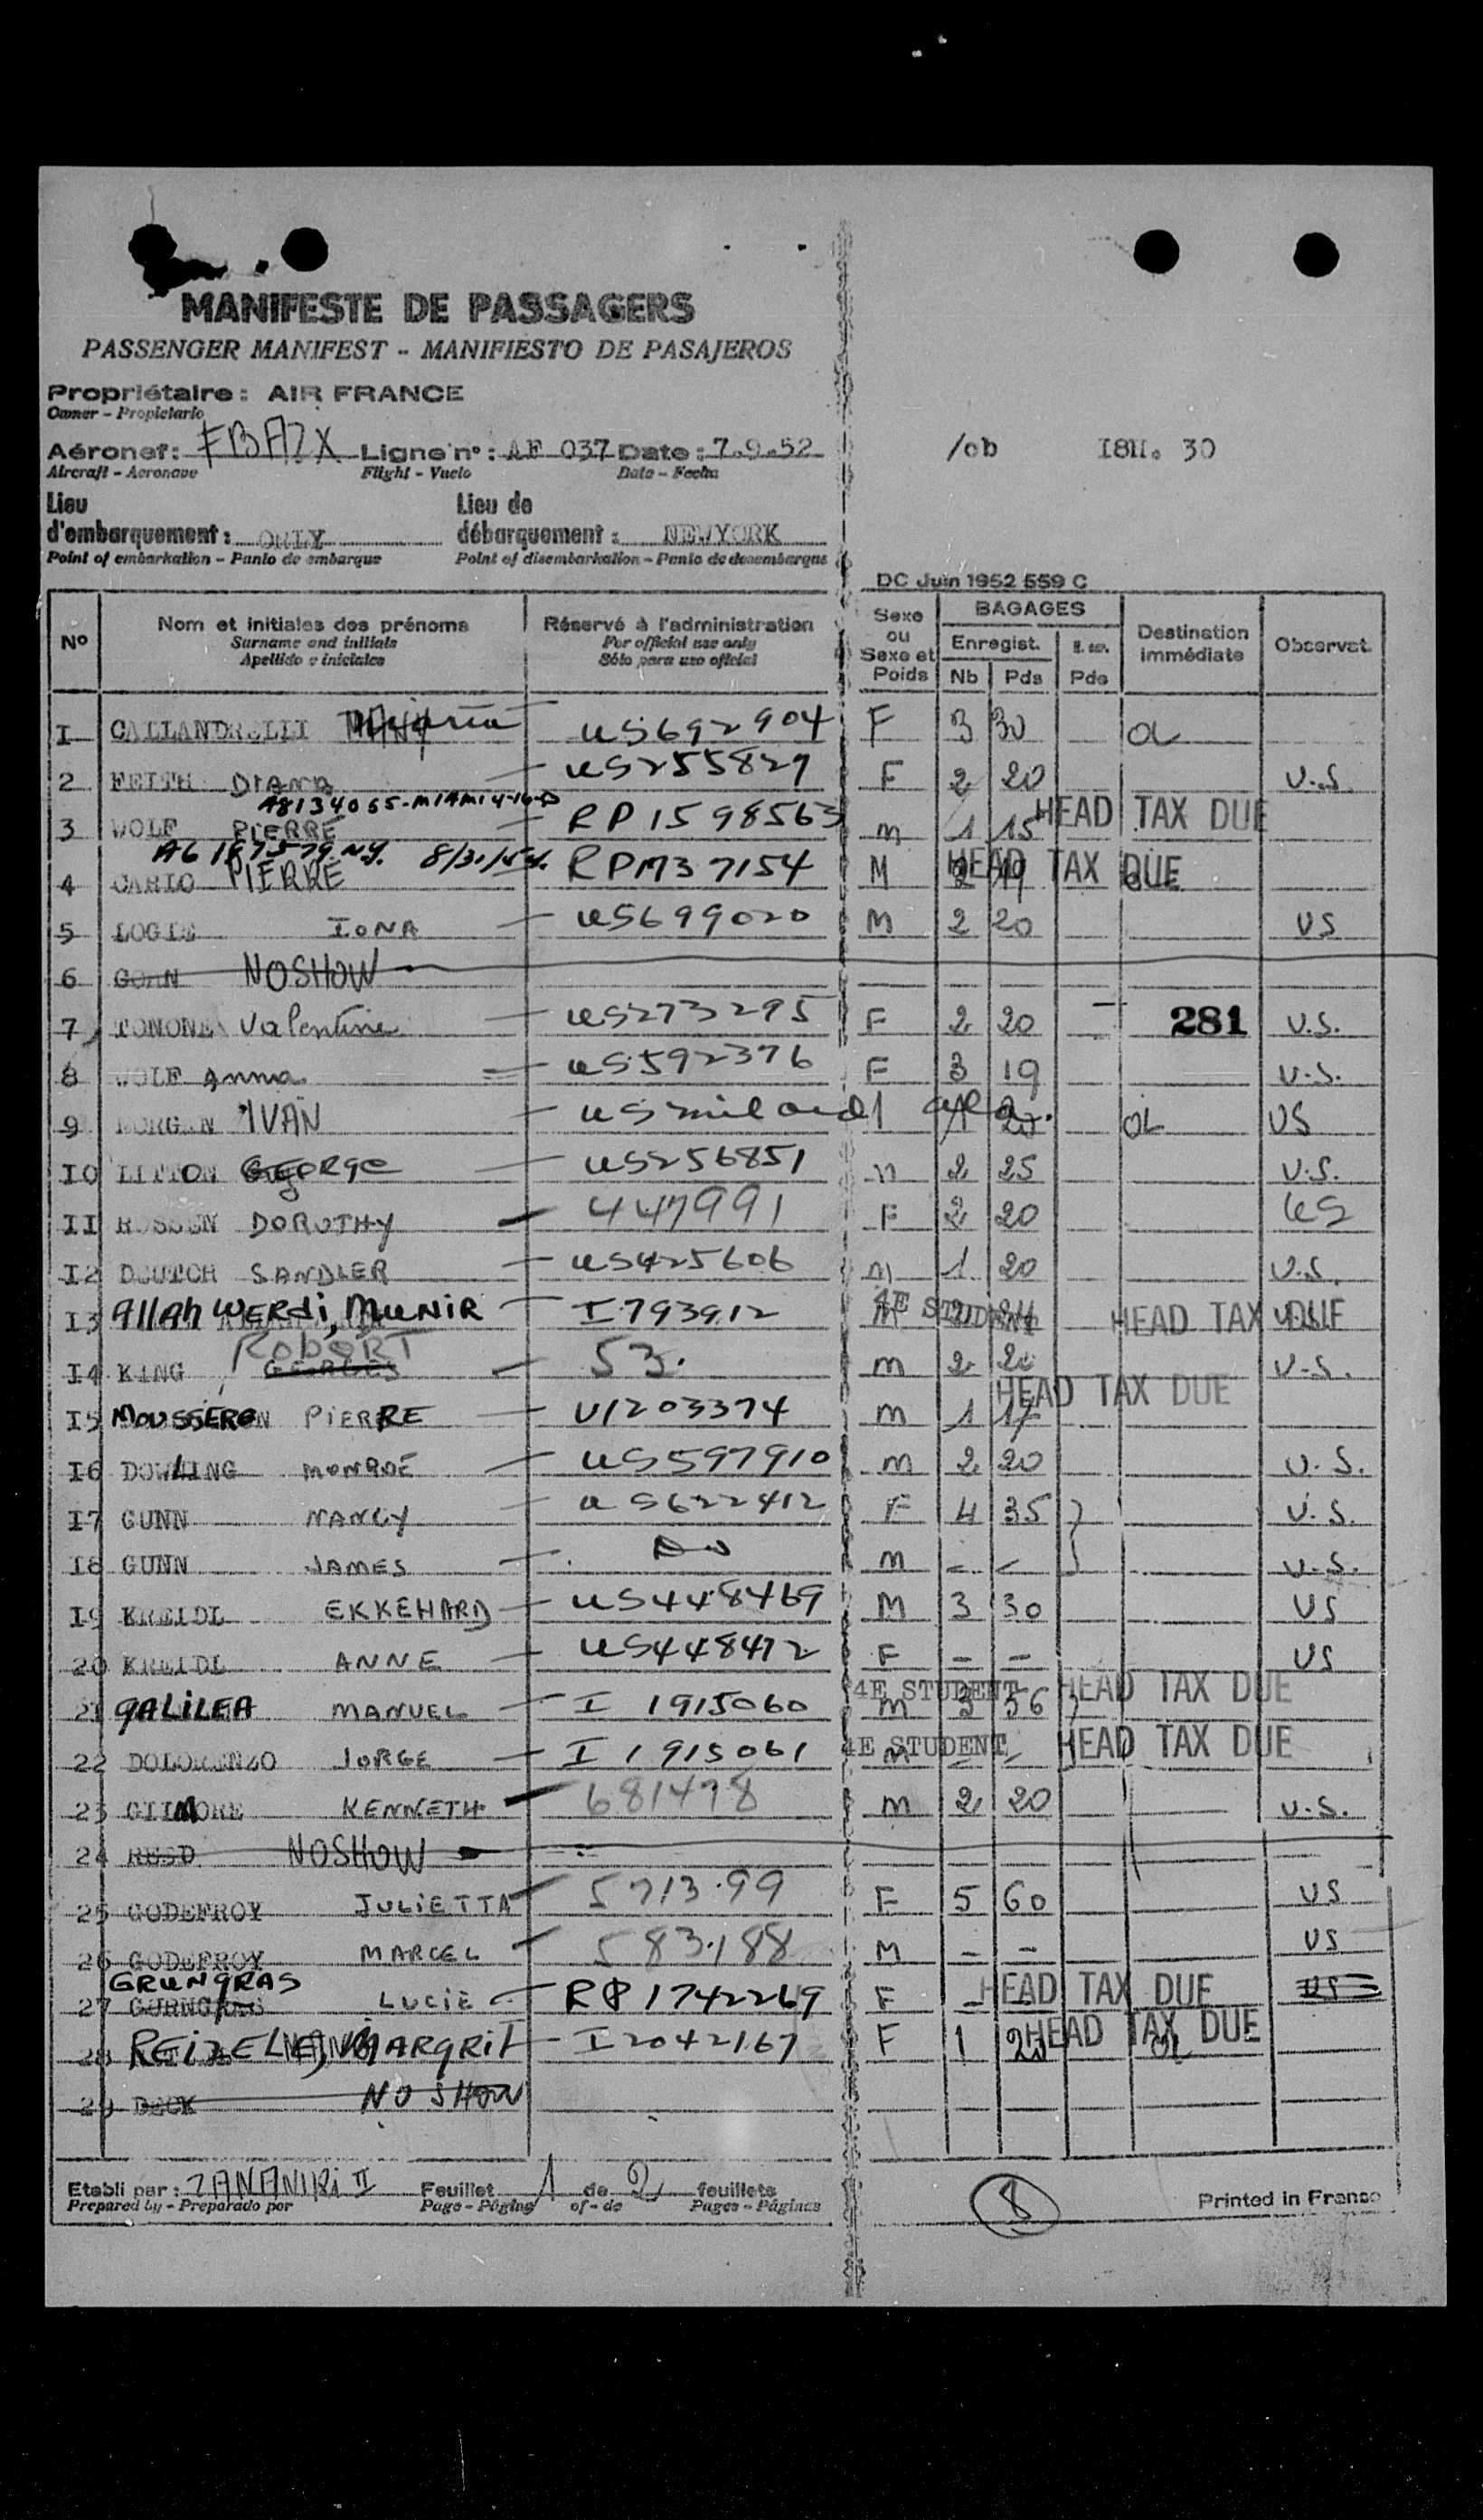 MANIFESTE DE PASSAGERS
PASSENGER MANIFEST - MANIFIESTO DE PASAJEROS
Propriétaire : AIR FRANCE
Owner - Propietario
Aéronef : FBAZX Ligne n° : AF 037 Date : 7.9.52 /cb
Aircraft - Aeronave Flight - Vuelo Date - Fecha
Lieu d'embarquement : ORLY Lieu de débarquement : NEWYORK
Point of embarkation - Punto de embarque Point of disembarkation - Punto de desembarque
DC Juin 1952 559 C
N° Nom et initiales des prénoms Réservé à l'administration Sexe ou Sexe et Poids BAGAGES Enregist. Nb Pds Pds Destination immédiate Observat.
Surname and initials For official use only
Apellido e iniciales Sólo para uso oficial
I CALLANDRELLI US692904 F 3 30
2 FEITH DIANA US255827 F 2 20 U.S.
A8134065-MIAMI
3 WOLF PIERRE RP1598563 m 1 15 HEAD TAX DUE
A6187579 N.Y. 8/31/54
4 CARIO PIERRE RPM37154 M HEAD TAX DUE
5 LOGIE IONA US699020 M 2 20 US
6 NOSHOW
7 TONONE Valentine US273295 F 2 20 281 U.S.
8 WOLF Anna US592376 F 3 19 U.S.
9 IVAN US US
IO LITTON GEORGE US256851 m 2 25 U.S.
II ROSSEN DOROTHY 447991 F 2 20 US
I2 DEUTCH SANDLER US425606 m 1 20 U.S.
I3 Allah WERdi, MUNIR I793912 4E STUDENT HEAD TAX DUE
I4 KING RobeRT GEORGES 53. m 2 20 U.S.
I5 MOUSSERON PIERRE V1203374 m 1 17 HEAD TAX DUE
I6 DOWLING MONROE US597910 m 2 20 U.S.
I7 GUNN NANCY US622412 F 4 35 U.S.
I8 GUNN JAMES Do m - - U.S.
I9 KREIDL EKKEHARD US448469 M 3 30 US
20 KREIDL ANNE US448472 F - - US
21 GALILEA MANUEL I 1915060 4E STUDENT m 3 56 HEAD TAX DUE
22 DOLORENZO JORGE I 1915061 4E STUDENT m - - HEAD TAX DUE
23 GILMORE KENNETH 681478 m 2 20 U.S.
24 NOSHOW
25 GODEFROY JULIETTA 5713.99 F 5 60 US
26 GODEFROY MARCEL 583.188 M - - US
27 GRUNGRAS LUCIE RP1742269 F - HEAD TAX DUE US
28 MARGRIT I2042167 F 1 20 HEAD TAX DUE
29 DECK NO SHOW
Etabli par : ZANANIRI II Feuillet 1 de 2 feuillets 8 Printed in France
Prepared by - Preparado por Page - Página of - de Pages - Páginas